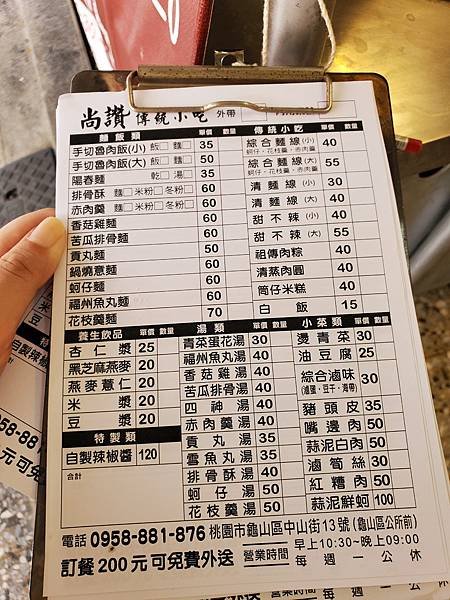 尚讚 傳統小吃 外帶
麵飯類 單價 數量
手切魯肉飯(小) 飯□ 麵□ 35
手切魯肉飯(大) 飯□ 麵□ 50
陽春麵 乾□ 湯□ 35
排骨酥 麵□ 米粉□ 冬粉□ 60
赤肉羹 麵□ 米粉□ 冬粉□ 60
香菇雞麵 60
苦瓜排骨麵 60
貢丸麵 50
鍋燒意麵 60
蚵仔麵 60
福州魚丸麵 60
花枝羹麵 70
傳統小吃 單價 數量
綜合麵線(小) 40
蚵仔、花枝羹、赤肉羹
綜合麵線(大) 55
蚵仔、花枝羹、赤肉羹
清麵線(小) 30
清麵線(大) 40
甜不辣(小) 40
甜不辣(大) 55
祖傳肉粽 40
清蒸肉圓 40
筒仔米糕 40
白飯 15
養生飲品 單價 數量
杏仁漿 25
黑芝麻燕麥 20
燕麥薏仁 20
米漿 20
豆漿 20
特製類
自製辣椒醬 120
合計:
湯類 單價 數量
青菜蛋花湯 30
福州魚丸湯 40
香菇雞湯 40
苦瓜排骨湯 40
四神湯 40
赤肉羹湯 40
貢丸湯 30
雪魚丸湯 30
排骨酥湯 40
蚵仔湯 50
花枝羹湯 50
小菜類 單價 數量
燙青菜 30
油豆腐 25
綜合滷味 30
(滷蛋、豆干、海帶)
豬頭皮 35
嘴邊肉 50
蒜泥白肉 50
滷筍絲 30
紅糟肉 50
蒜泥鮮蚵 100
電話 0958-881-876 桃園市龜山區中山街13號(龜山區公所前)
訂餐200元可免費外送 營業時間 早上10:30~晚上09:00
每週一公休